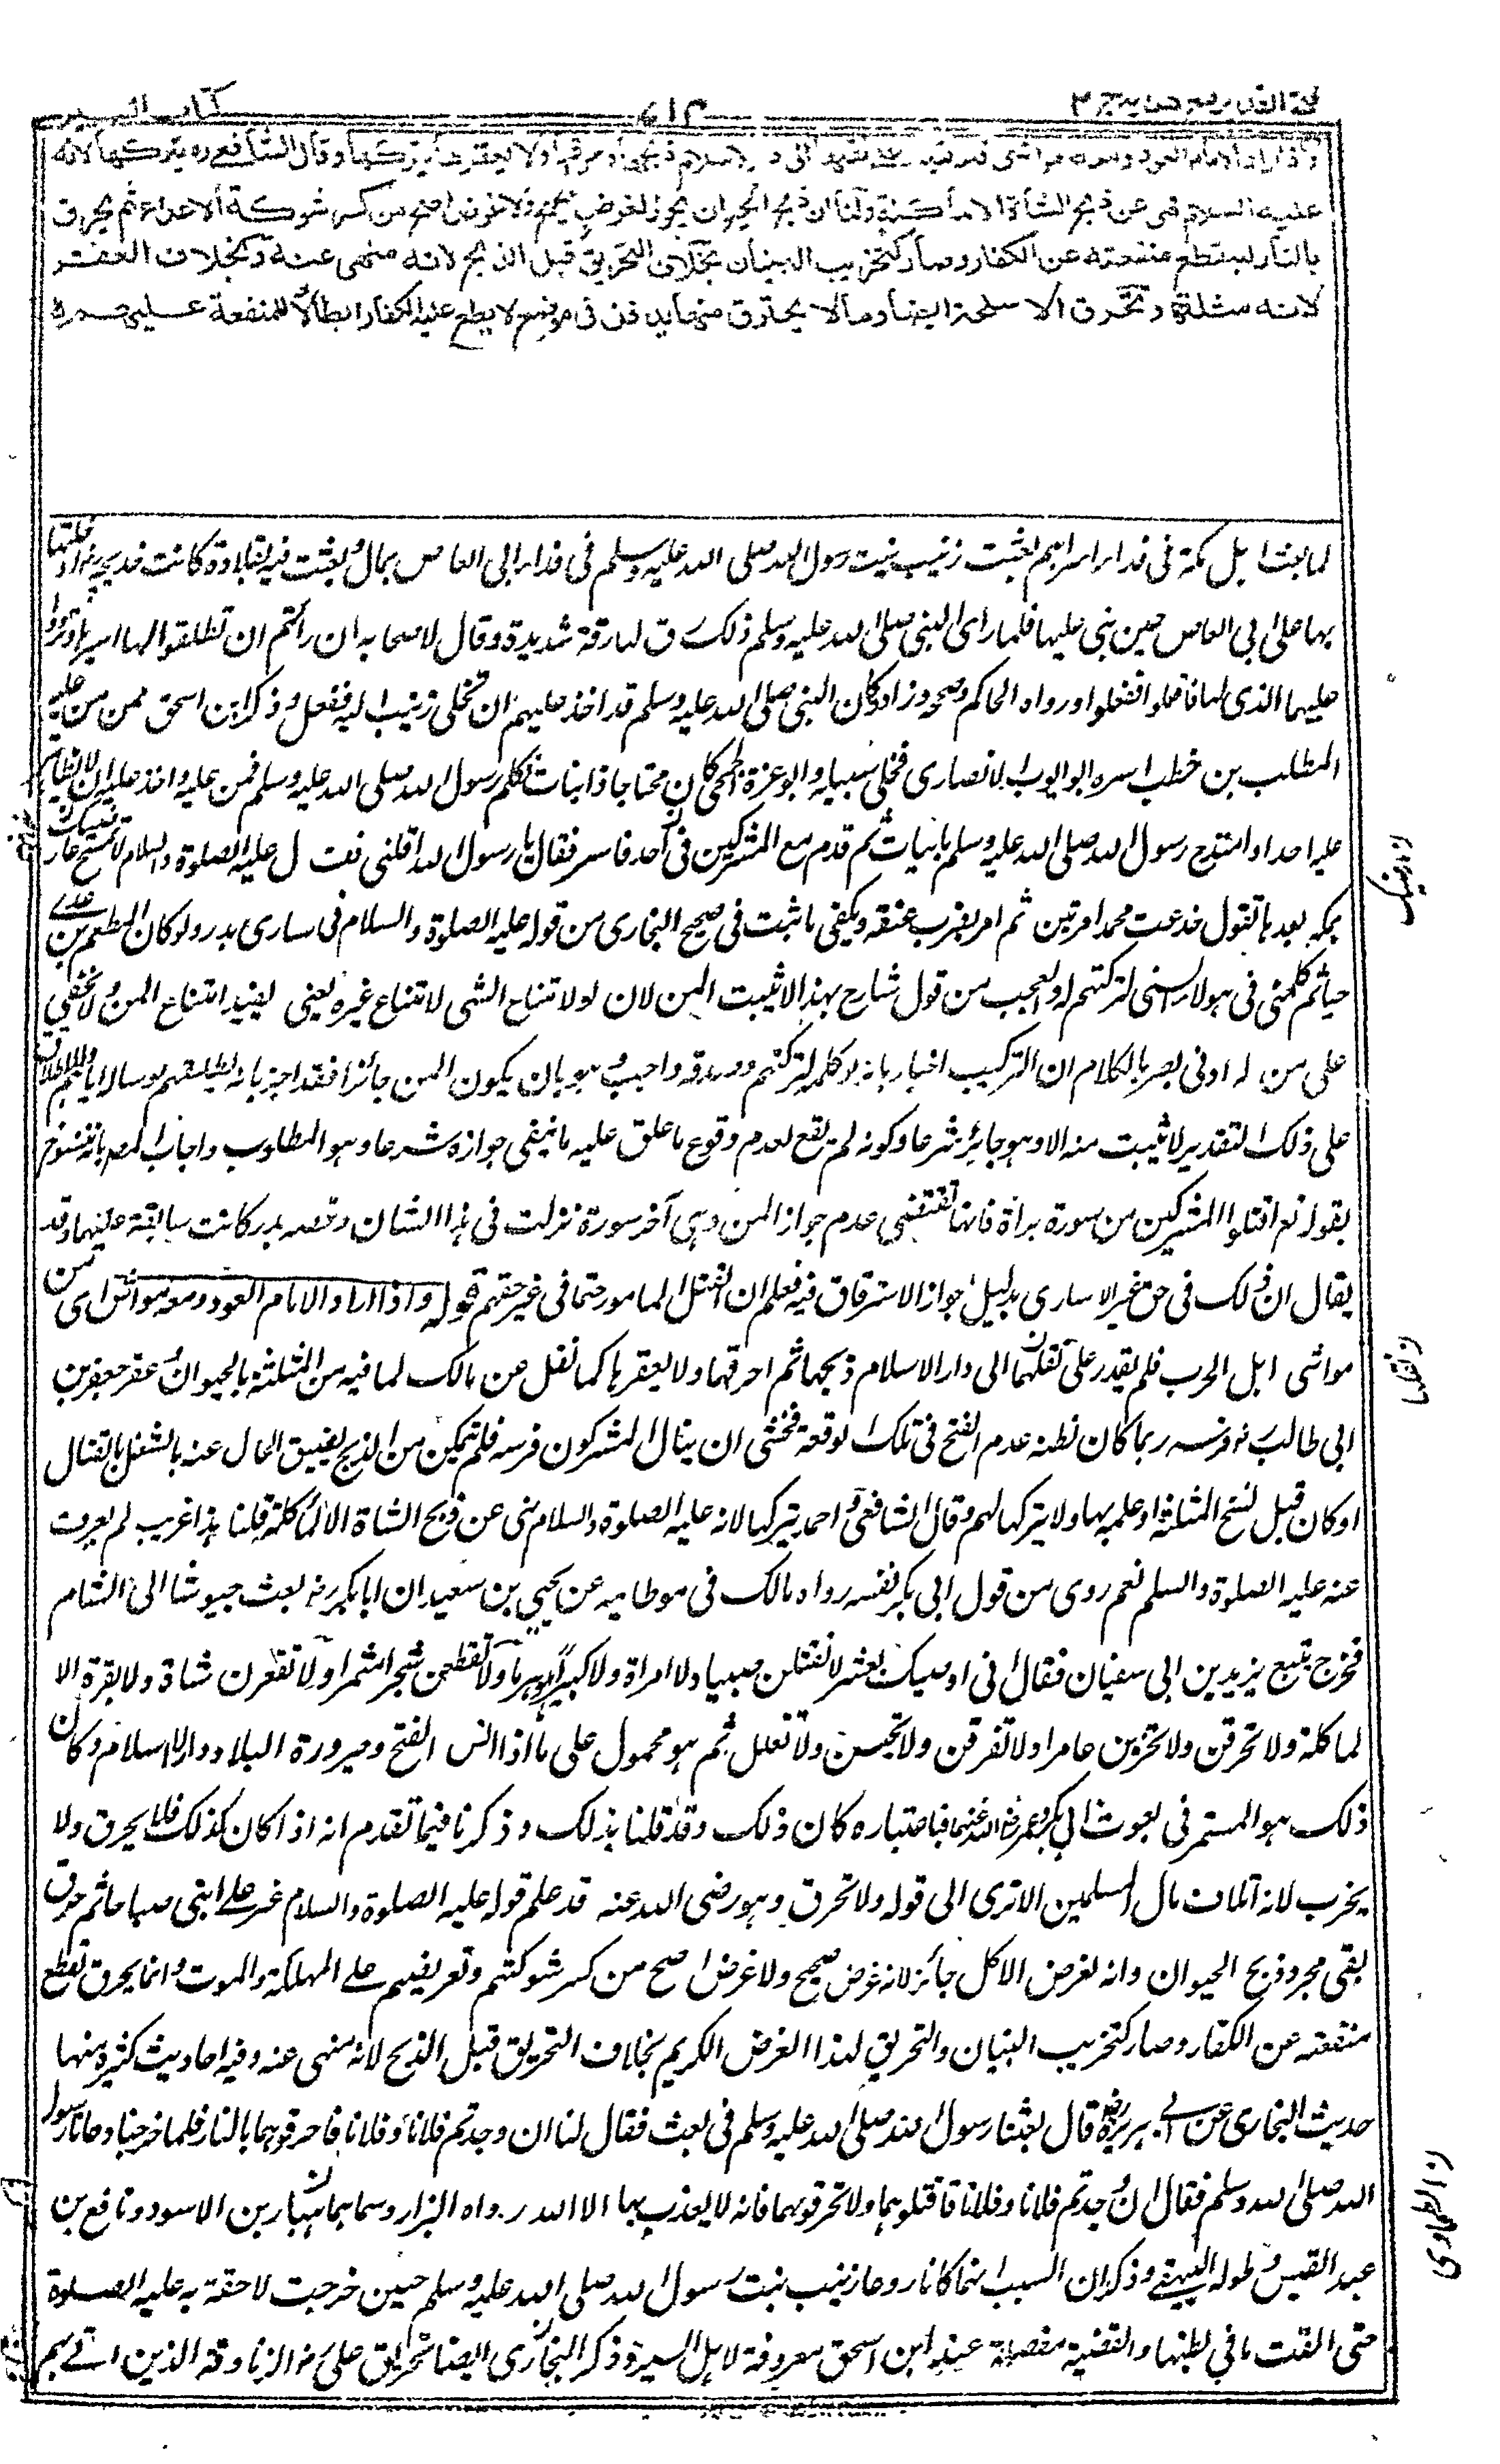 فتح القدير مع هداية ج ٢
٧١٣
كتاب السير
واذا اراد الامام العود ومعه مواشى فلم يقدر على نقلها الى دار الاسلام ذبحها وحرقها ولا يعقرها ولا يتركها وقال الشافعى ره يتركها لانه
عليه السلام نهى عن ذبح الشاة الا لمأكلة ولنا ان ذبح الحيوان يجوز لغرض صحيح ولا غرض اصح من كسر شوكة الاعداء ثم يحرق
بالنار لينقطع منفعته عن الكفار وصار كتخريب البنيان بخلاف التحريق قبل الذبح لانه منهى عنه وبخلاف العقر
لانه مثلة وتحرق الاسلحة ايضا وما لا يحترق منها يدفن فى موضع لا يطلع عليه الكفار ابطالا للمنفعة عليهم
لما بعث اهل مكة فى فداء اسراهم بعثت زينب بنت رسول الله صلى الله عليه وسلم فى فداء ابى العاص بمال وبعثت فيه بقلادة كانت خديجة رض ادخلتها
بها على ابى العاص حين بنى عليها فلما راى النبى صلى الله عليه وسلم ذلك رق لها رقة شديدة وقال لاصحابه ان رأيتم ان تطلقوا لها اسيرها وتردوا
عليها الذى لها فافعلوا ففعلوا ورواه الحاكم وصححه وزاد وكان النبى صلى الله عليه وسلم قد اخذ عليهم ان يخلى زينب اليه ففعل وذكر ابن اسحق ممن من عليه
المطلب بن حنطب اسره ابو ايوب الانصارى فخلى سبيله وابو عزة الجمحى كان محتاجا ذا بنات فكلم رسول الله صلى الله عليه وسلم فمن عليه واخذ عليه ان لا يظاهر
عليه احدا وامتدح رسول الله صلى الله عليه وسلم بابيات ثم قدم مع المشركين فى احد فاسر فقال يا رسول الله اقلنى فقال عليه الصلوة والسلام لا تمسح عارضيك
بمكة بعدها تقول خدعت محمدا مرتين ثم امر بضرب عنقه ويكفى ما ثبت فى صحيح البخارى من قوله عليه الصلوة والسلام فى سارى بدر ولو كان المطعم بن عدى
حيا ثم كلمنى فى هولاء النتنى لتركتهم له والعجب من قول شارح بهذا لا يثبت المن لان لو لامتناع الشى لامتناع غيره يعنى يفيد امتناع المن ولا يخفى
على من له ادنى بصر بالكلام ان التركيب اخبار بانه لو كلمه لتركهم وصدقه واجب وهو بان يكون المن جائزا فقد اخبر بانه يطلقهم لو ساله اياهم والاطلاق
على ذلك التقدير لا يثبت منه الا وهو جائز شرعا وكونه لم يقع لعدم وقوع ما علق عليه ما ينفى جوازه شرعا وهو المطلوب واجاب المص بانه منسوخ
بقوله تع اقتلوا المشركين من سورة براة فانها تقتضى عدم جواز المن وهى آخر سورة نزلت فى هذا الشان وقصة بدر كانت سابقة عليها وقد
يقال ان ذلك فى حق غير الاسارى بدليل جواز الاسترقاق فيه فعلم ان القتل المامور حتما فى غير حقهم قوله واذا اراد الامام العود ومعه مواش اى من
مواشى اهل الحرب فلم يقدر على نقلها الى دار الاسلام ذبحها ثم احرقها ولا يعقرها كما نقل عن مالك لما فيه من المثلة بالحيوان وعقر جعفر بن
ابى طالب رض فرسه ربما كان لظنه عدم الفتح فى تلك الوقعة فخشى ان ينال المشركون فرسه فلم يتمكن من الذبح لضيق الحال عنه بالشغل بالقتال
او كان قبل نسخ المثلة او علمه بها ولا يتركها لهم وقال الشافعى واحمد يتركها لانه عليه الصلوة والسلام نهى عن ذبح الشاة الا لماكلة قلنا هذا غريب لم يعرف
عنه عليه الصلوة والسلم نعم روى من قول ابى بكر نفسه رواه مالك فى موطايه عن يحيى بن سعيد ان ابا بكر رض بعث جيوشا الى الشام
فخرج يتبع يزيد بن ابى سفيان فقال انى اوصيك بعشر لا تقتلن صبيا ولا امراة ولا كبيرا هرما ولا تقطعن شجرا مثمرا ولا تعقرن شاة ولا بقرة الا
لماكلة ولا تحرقن ولا تخربن عامرا ولا تفرقن ولا تجبن ولا تغلل ثم هو محمول على ما اذا انس الفتح وصيرورة البلاد دار الاسلام وكان
ذلك هو المستمر فى بعوث ابى بكر وعمر رضى الله عنهما فباعتباره كان ذلك وقد قلنا بذلك وذكرنا فيما تقدم انه اذا كان كذلك فلا يحرق ولا
يخرب لانه اتلاف مال المسلمين الا ترى الى قوله ولا تحرق وهو رضى الله عنه قد علم قوله عليه الصلوة والسلام اغر على ابنى صباحا ثم حرق
بقى مجرد ذبح الحيوان وانه لغرض الاكل جائز لانه غرض صحيح ولا غرض اصح من كسر شوكتهم وتعريضهم على المهلكة والموت وانما يحرق لقطع
منفعته عن الكفار وصار كتخريب البنيان والتحريق لهذا الغرض الكريم بخلاف التحريق قبل الذبح لانه منهى عنه وفيه احاديث كثيرة منها
حديث البخارى عن ابى هريرة رض قال بعثنا رسول الله صلى الله عليه وسلم فى بعث فقال لنا ان وجدتم فلانا وفلانا فاحرقوهما بالنار فلما خرجنا دعانا رسول
الله صلى الله وسلم فقال ان وجدتم فلانا وفلانا فاقتلوهما ولا تحرقوهما فانه لا يعذب بها الا الله رواه البزار وسماهما هبار بن الاسود ونافع بن
عبد القيس وطوله البيهقى وذكر ان السبب انهما كانا روعا زينب بنت رسول الله صلى الله عليه وسلم حين خرجت لاحقة به عليه الصلوة
حتى القت ما فى بطنها والقضية مفصلة عند ابن اسحق معروفة لاهل السيرة وذكر البخارى ايضا تحريق على رض الزنادقة الذين اتى بهم